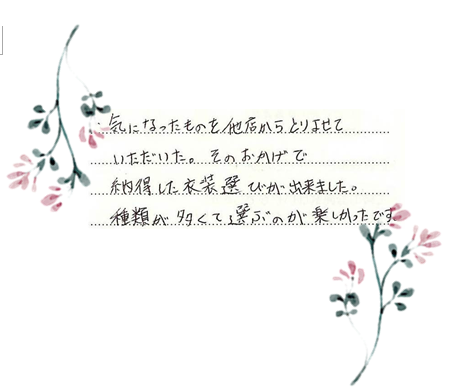 気になったものを他店からとりよせて
いただいた。そのおかげで
納得した衣装選びが出来ました。
種類が多くて選ぶのが楽しかったです。